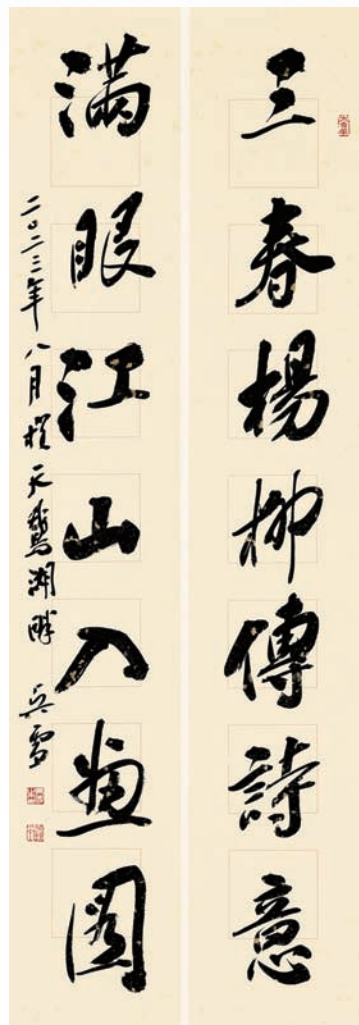 三春楊柳傳詩意
滿眼江山入畫圖
二〇二三年八月於天鵝湖畔 吳雪